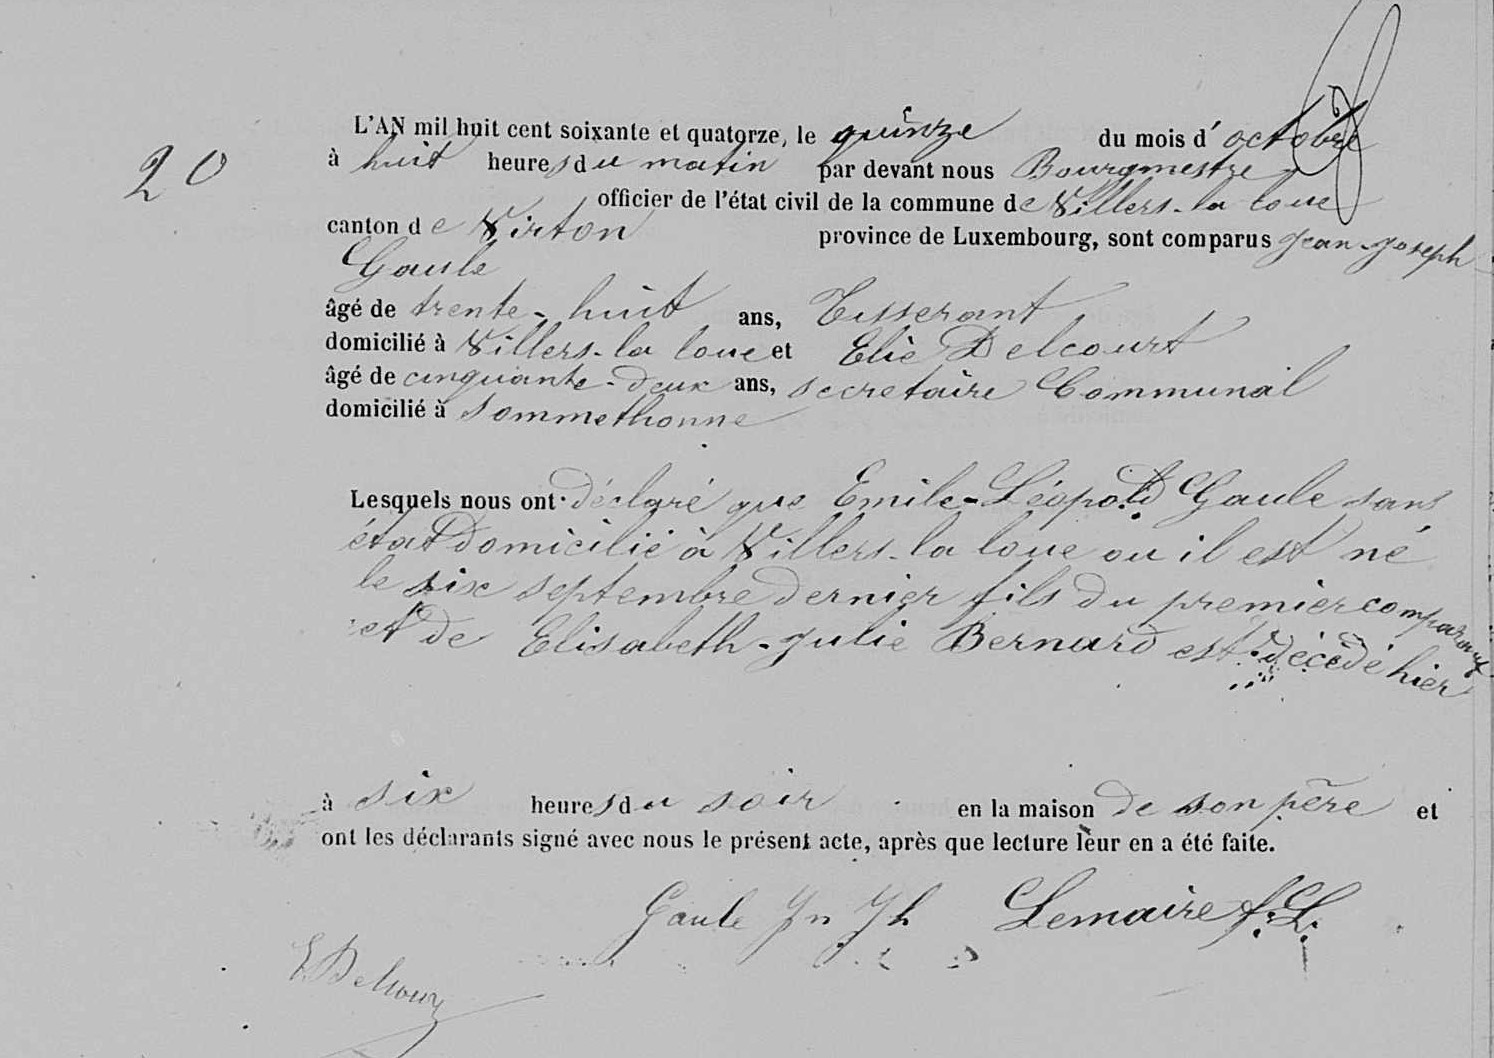 20
L'AN mil huit cent soixante et quatorze, le quinze du mois d'octobre
à huit heures du matin par devant nous Bourgmestre
officier de l'état civil de la commune de Villers-la loue
canton de Virton province de Luxembourg, sont comparus Jean-Joseph
Gaule
âgé de trente-huit ans, Tisserant
domicilié à Villers-la loue et Elie Delcourt
âgé de cinquante-deux ans, secretaire Communal
domicilié à Sommethonne
Lesquels nous ont déclaré que Emile-Léopold Gaule sans
état domicilié à Villers-la loue ou il est né
le six septembre dernier fils du premier comparant
et de Elisabeth-Julie Bernard est décédé hier
à six heures du soir en la maison de son père et
ont les déclarants signé avec nous le présent acte, après que lecture leur en a été faite.
Gaule Jn Jh Lemaire f.L.
E Delcour